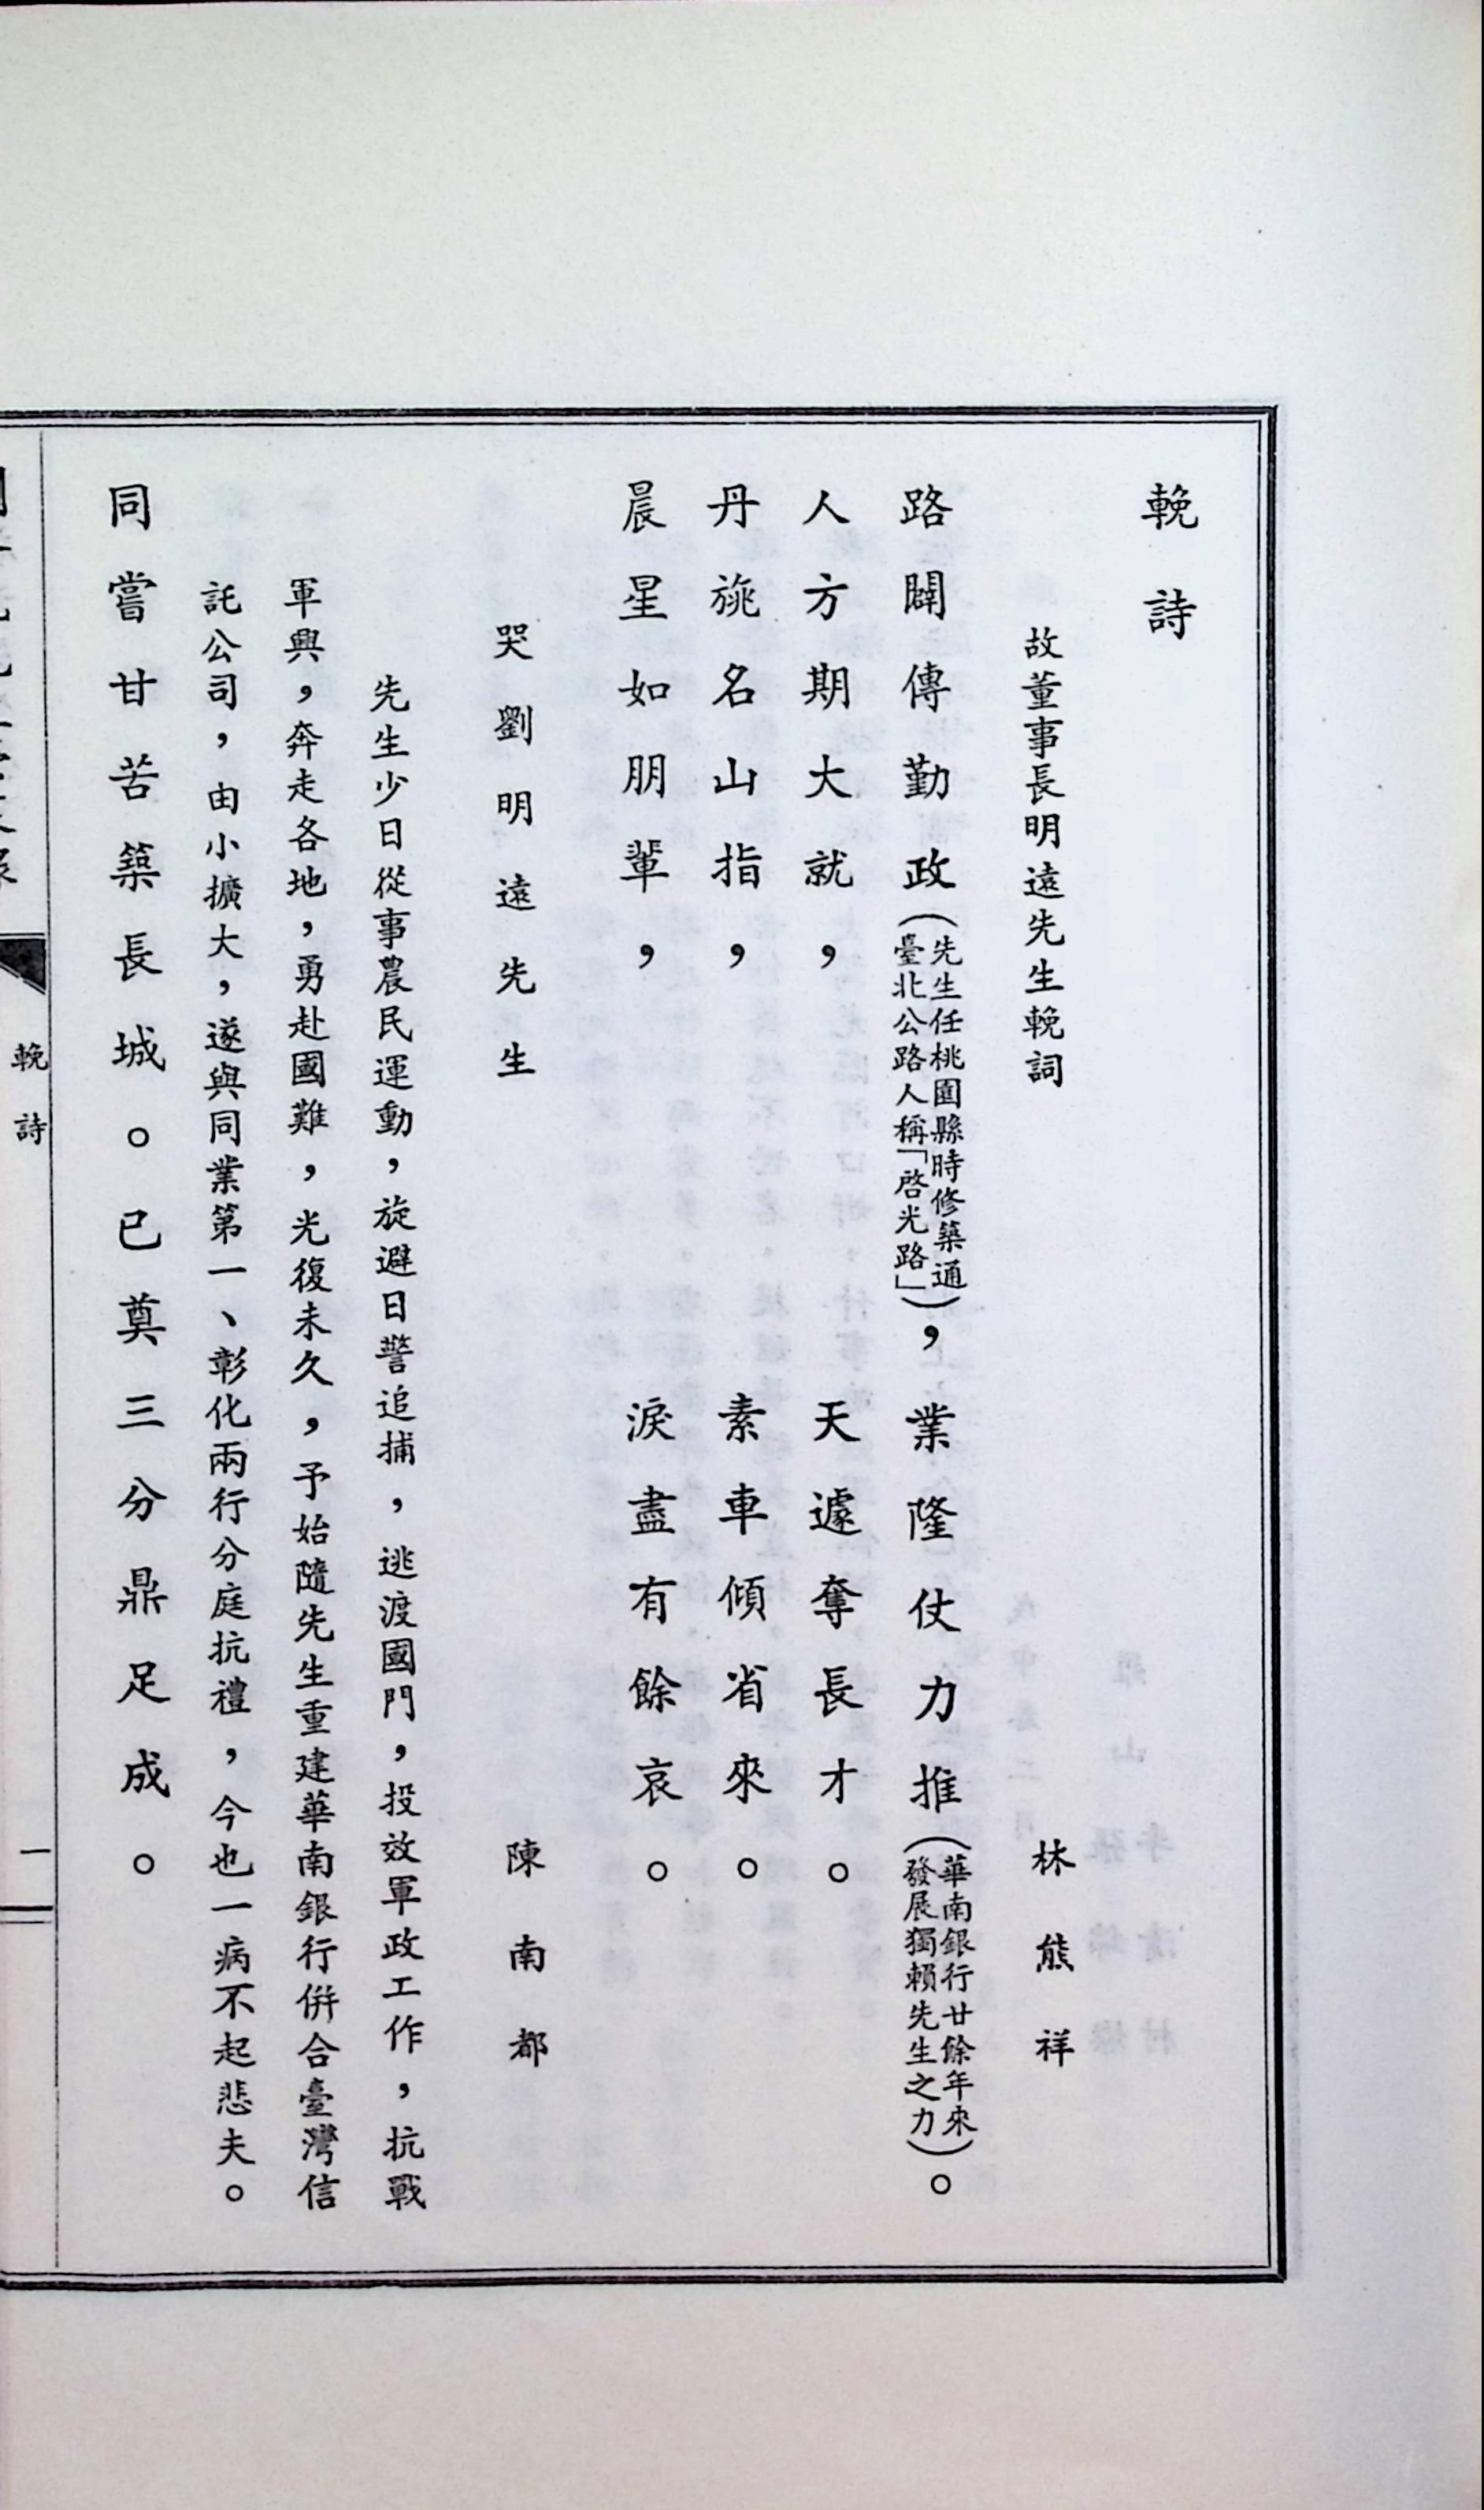 輓詩
故董事長明遠先生輓詞　林熊祥
路闢傳勤政（先生任桃園縣時修築通臺北公路人稱「啓光路」），業隆仗力推（華南銀行廿餘年來發展獨賴先生之力）。
人方期大就，天遽奪長才。
丹旐名山指，素車傾省來。
晨星如朋輩，淚盡有餘哀。
哭劉明遠先生　陳南都
先生少日從事農民運動，旋避日警追捕，逃渡國門，投效軍政工作，抗戰
軍興，奔走各地，勇赴國難，光復未久，予始隨先生重建華南銀行併合臺灣信
託公司，由小擴大，遂與同業第一、彰化兩行分庭抗禮，今也一病不起悲夫。
同嘗甘苦築長城。已奠三分鼎足成。
輓詩
一